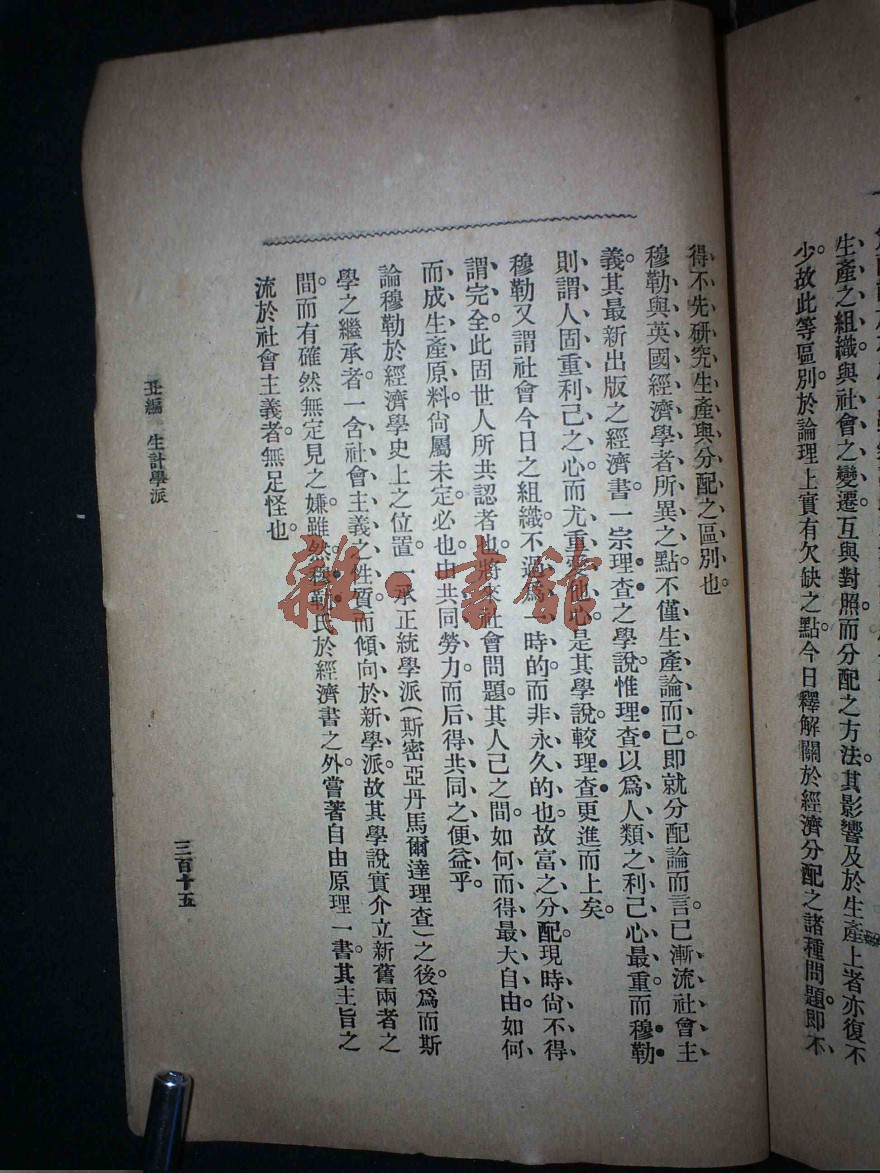 生產之組織與社會之變遷。互與對照而分配之方法。其影響及於生產上者亦復不
少。故此等區別於論理上實有欠缺之點。今日釋解關於經濟分配之諸種問題。即不
得不先研究生產與分配之區別也。
穆勒與英國經濟學者所異之點。不僅生產論而已。即就分配論而言。已漸流社會主
義。其最新出版之經濟書。一宗理查之學說。惟理查以爲人類之利己心最重。而穆勒
則謂人固重利己之心。而尤重愛他心。是其學說。較理查更進而上矣。
穆勒又謂社會今日之組織。不過爲一時的。而非永久的也。故富之分配。現時尙不得
謂完全。此固世人所共認者也。將來社會問題。其人己之間。如何而得最大自由。如何
而成生產原料。尙屬未定。必也由共同勞力。而后得共同之便益乎。
論穆勒於經濟學史上之位置。一承正統學派(斯密亞丹馬爾達理查)之後。爲而斯
學之繼承者。一含社會主義之性質。而傾向於新學派。故其學說實介立新舊兩者之
間。而有確然無定見之嫌。雖然。穆勒氏於經濟書之外。嘗著自由原理一書。其主旨之
流於社會主義者。無足怪也。
五編 生計學派
三百十五
雜·書館